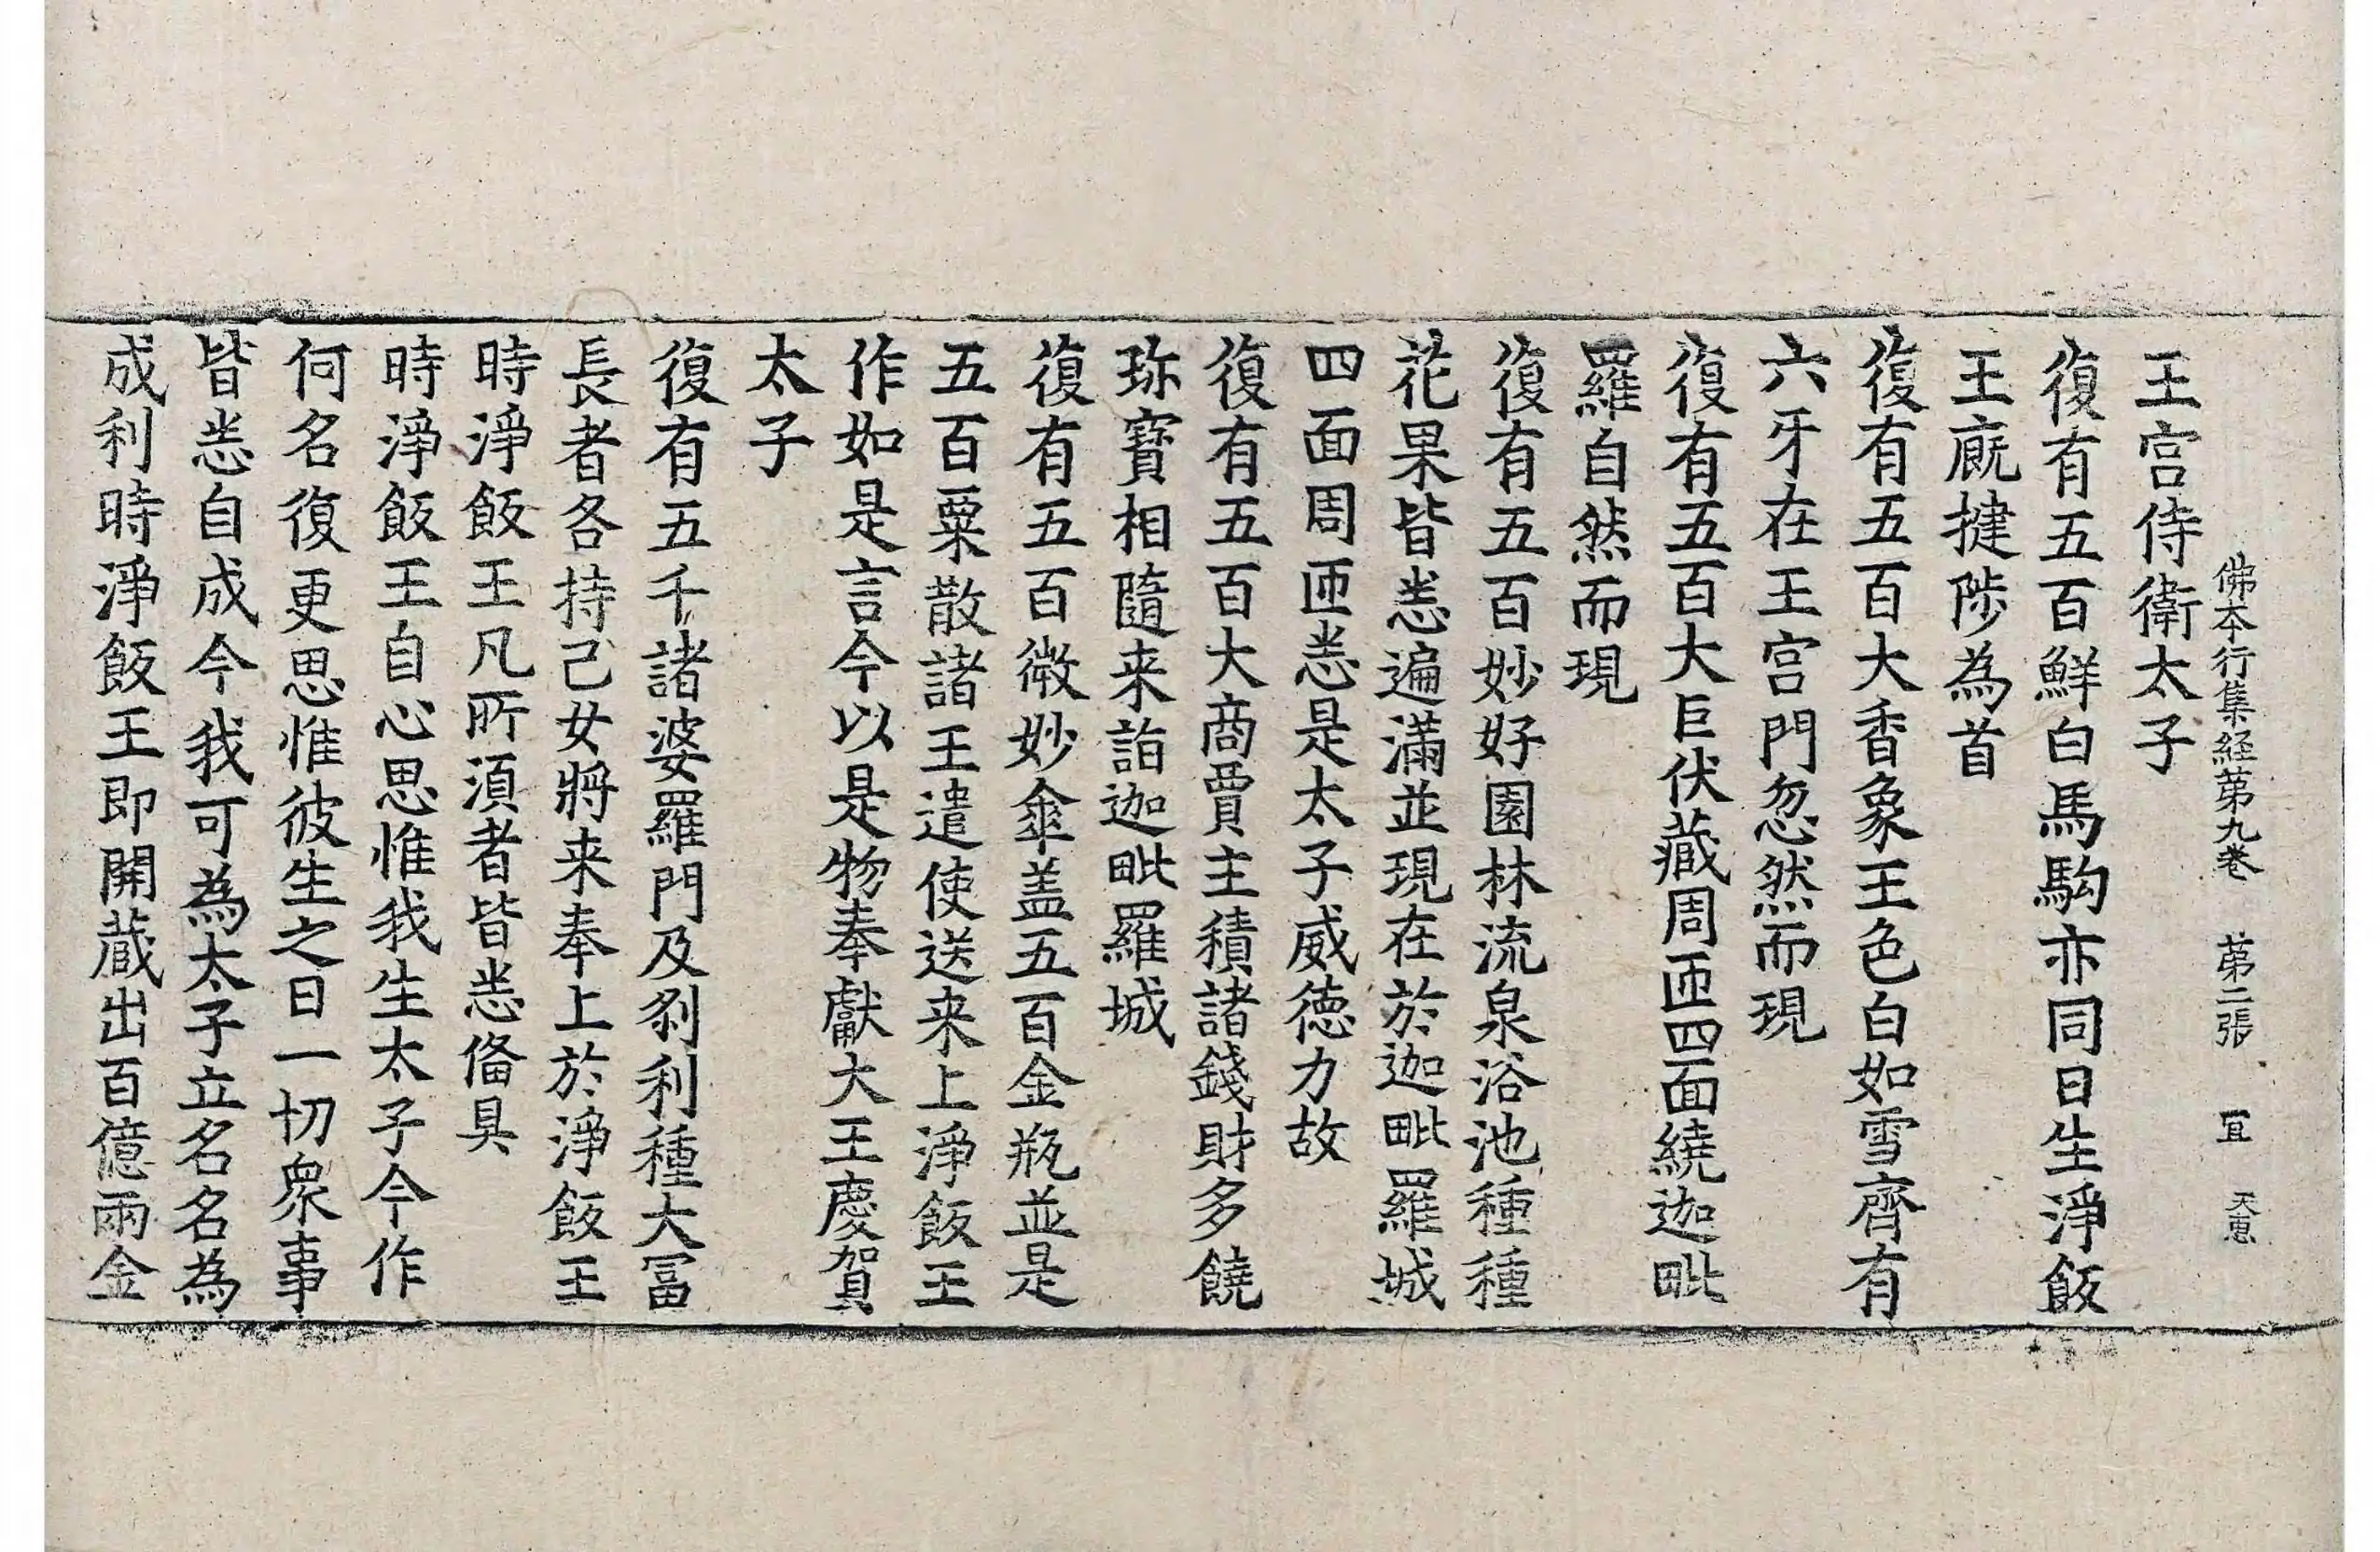 佛本行集経苐九卷 苐二張 冝 天惠
王宮侍衛太子
復有五百鮮白馬駒亦同日生淨飯
王廐揵陟為首
復有五百大香象王色白如雪齊有
六牙在王宮門忽然而現
復有五百大巨伏藏周匝四面繞迦毗
羅自然而現
復有五百妙好園林流泉浴池種種
花果皆悉遍滿並現在於迦毗羅城
四面周匝悉是太子威德力故
復有五百大商賈主積諸錢財多饒
珎寶相隨来詣迦毗羅城
復有五百微妙傘盖五百金瓶並是
五百粟散諸王遣使送来上淨飯王
作如是言今以是物奉獻大王慶賀
太子
復有五千諸婆羅門及刹利種大冨
長者各持己女將来奉上於淨飯王
時淨飯王凡所湏者皆悉俻具
時淨飯王自心思惟我生太子今作
何名復更思惟彼生之日一切衆事
皆悉自成今我可為太子立名名為
成利時淨飯王即開藏出百億兩金